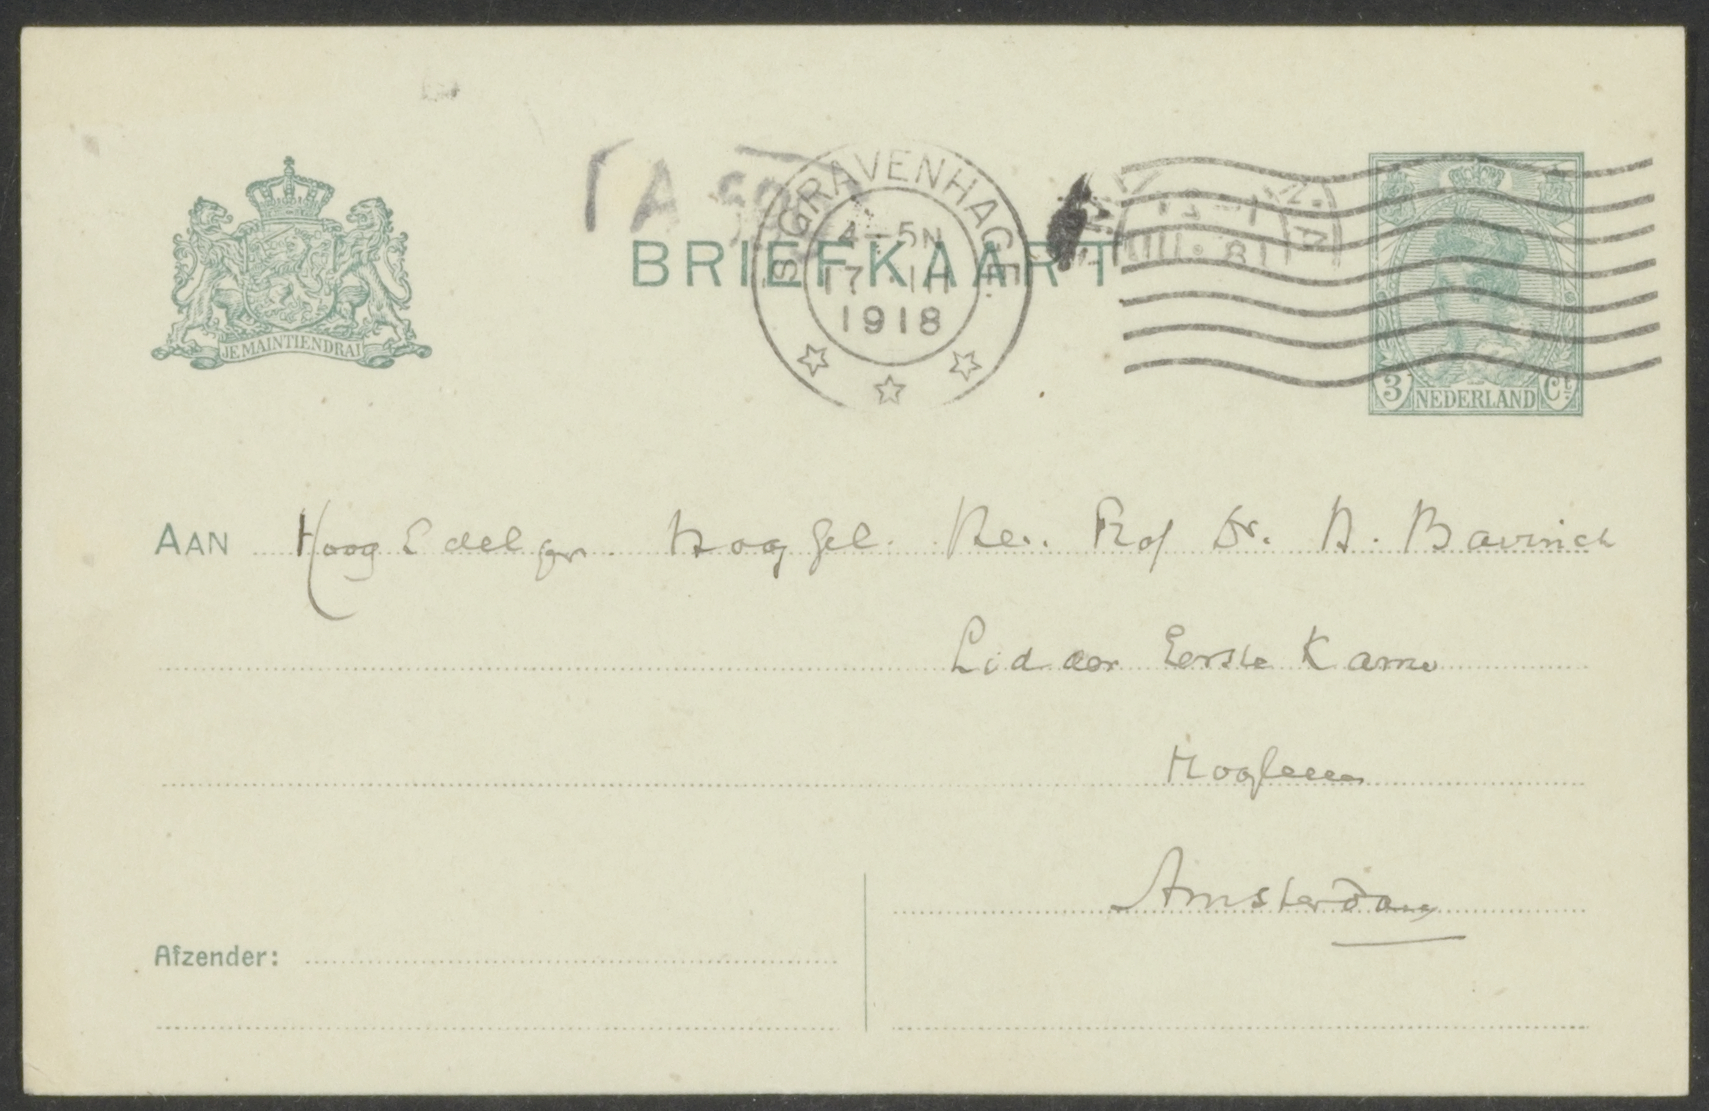 JE MAINTIENDRAI
'S GRAVENHAGE
4-5N
17 III
1918
BRIEFKAART
3 Ct
NEDERLAND
AAN Hoog Edelgr. Hooggel. Prof Dr. H. Bavinck
Lid der Eerste Kamer
Amsterdam
Afzender: